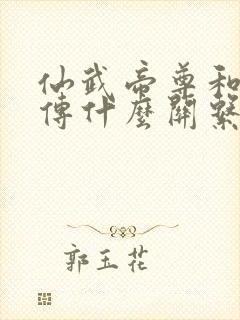 仙武帝尊和
傳什麼關繫
郭玉花